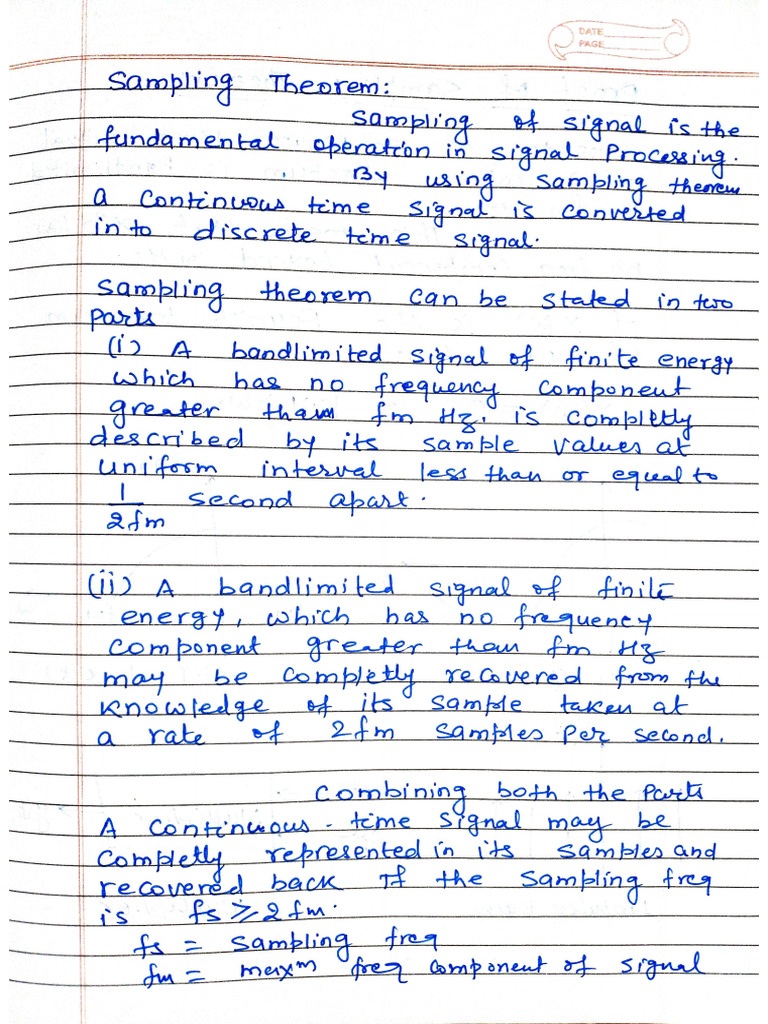 DATE
PAGE
Sampling Theorem:
Sampling of signal is the
fundamental operation in signal Processing.
By using sampling theorem
a continuous time signal is converted
in to discrete time signal.
Sampling theorem can be stated in two
parts
(i) A bandlimited signal of finite energy
which has no frequency component
greater than fm Hz. is completly
described by its sample values at
uniform interval less than or equal to
1/2fm second apart.
(ii) A bandlimited signal of finite
energy, which has no frequency
component greater than fm Hz
may be completly recovered from the
knowledge of its sample taken at
a rate of 2fm samples per second.
Combining both the parts
A continuous-time signal may be
completly represented in its samples and
recovered back If the sampling freq
is fs ≥ 2fm.
fs = sampling freq
fm = maxm freq component of signal